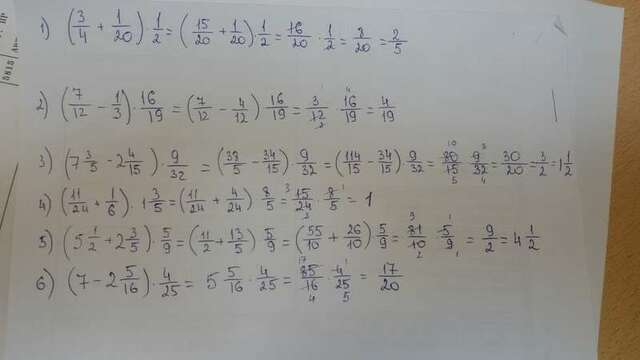 1) (3/4 + 1/20) · 1/2 = (15/20 + 1/20) · 1/2 = 16/20 · 1/2 = 8/20 = 2/5
2) (7/12 - 1/3) · 16/19 = (7/12 - 4/12) 16/19 = 3/12 · 16/19 = 4/19
3) (7 3/5 - 2 4/15) · 9/32 = (38/5 - 34/15) · 9/32 = (114/15 - 34/15) · 9/32 = 80/15 · 9/32 = 30/20 = 3/2 = 1 1/2
4) (11/24 + 1/6) · 1 3/5 = (11/24 + 4/24) · 8/5 = 15/24 · 8/5 = 1
5) (5 1/2 + 2 3/5) · 5/9 = (11/2 + 13/5) 5/9 = (55/10 + 26/10) 5/9 = 81/10 · 5/9 = 9/2 = 4 1/2
6) (7 - 2 5/16) · 4/25 = 5 5/16 · 4/25 = 85/16 · 4/25 = 17/20